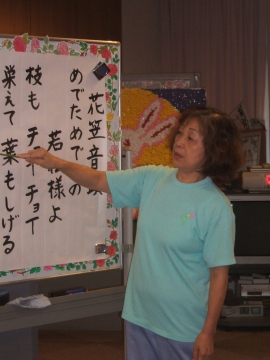 花笠音頭
めでためでたの
若松様よ
枝も チョイチョイ
栄えて 葉もしげる